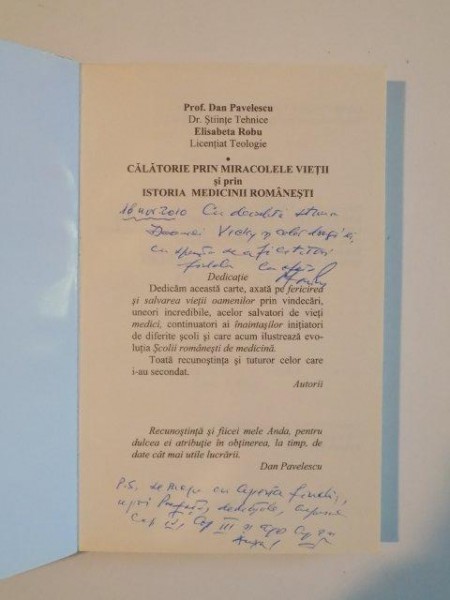 Prof. Dan Pavelescu
Dr. Științe Tehnice
Elisabeta Robu
Licențiat Teologie
•
CĂLĂTORIE PRIN MIRACOLELE VIEȚII
și prin
ISTORIA MEDICINII ROMÂNEȘTI
16 nov 2010 Cu deosebită stima
Doamnei Vicky și celor dragi ei,
cu
Dedicație
Dedicăm această carte, axată pe fericirea
și salvarea vieții oamenilor prin vindecări,
uneori incredibile, acelor salvatori de vieți
medici, continuatori ai înaintașilor inițiatori
de diferite școli și care acum ilustrează evo-
luția Școlii românești de medicină.
Toată recunoștința și tuturor celor care
i-au secondat.
Autorii
Recunoștință și fiicei mele Anda, pentru
dulcea ei atribuție în obținerea, la timp, de
date cât mai utile lucrării.
Dan Pavelescu
P.S. de
Cap III și Cap